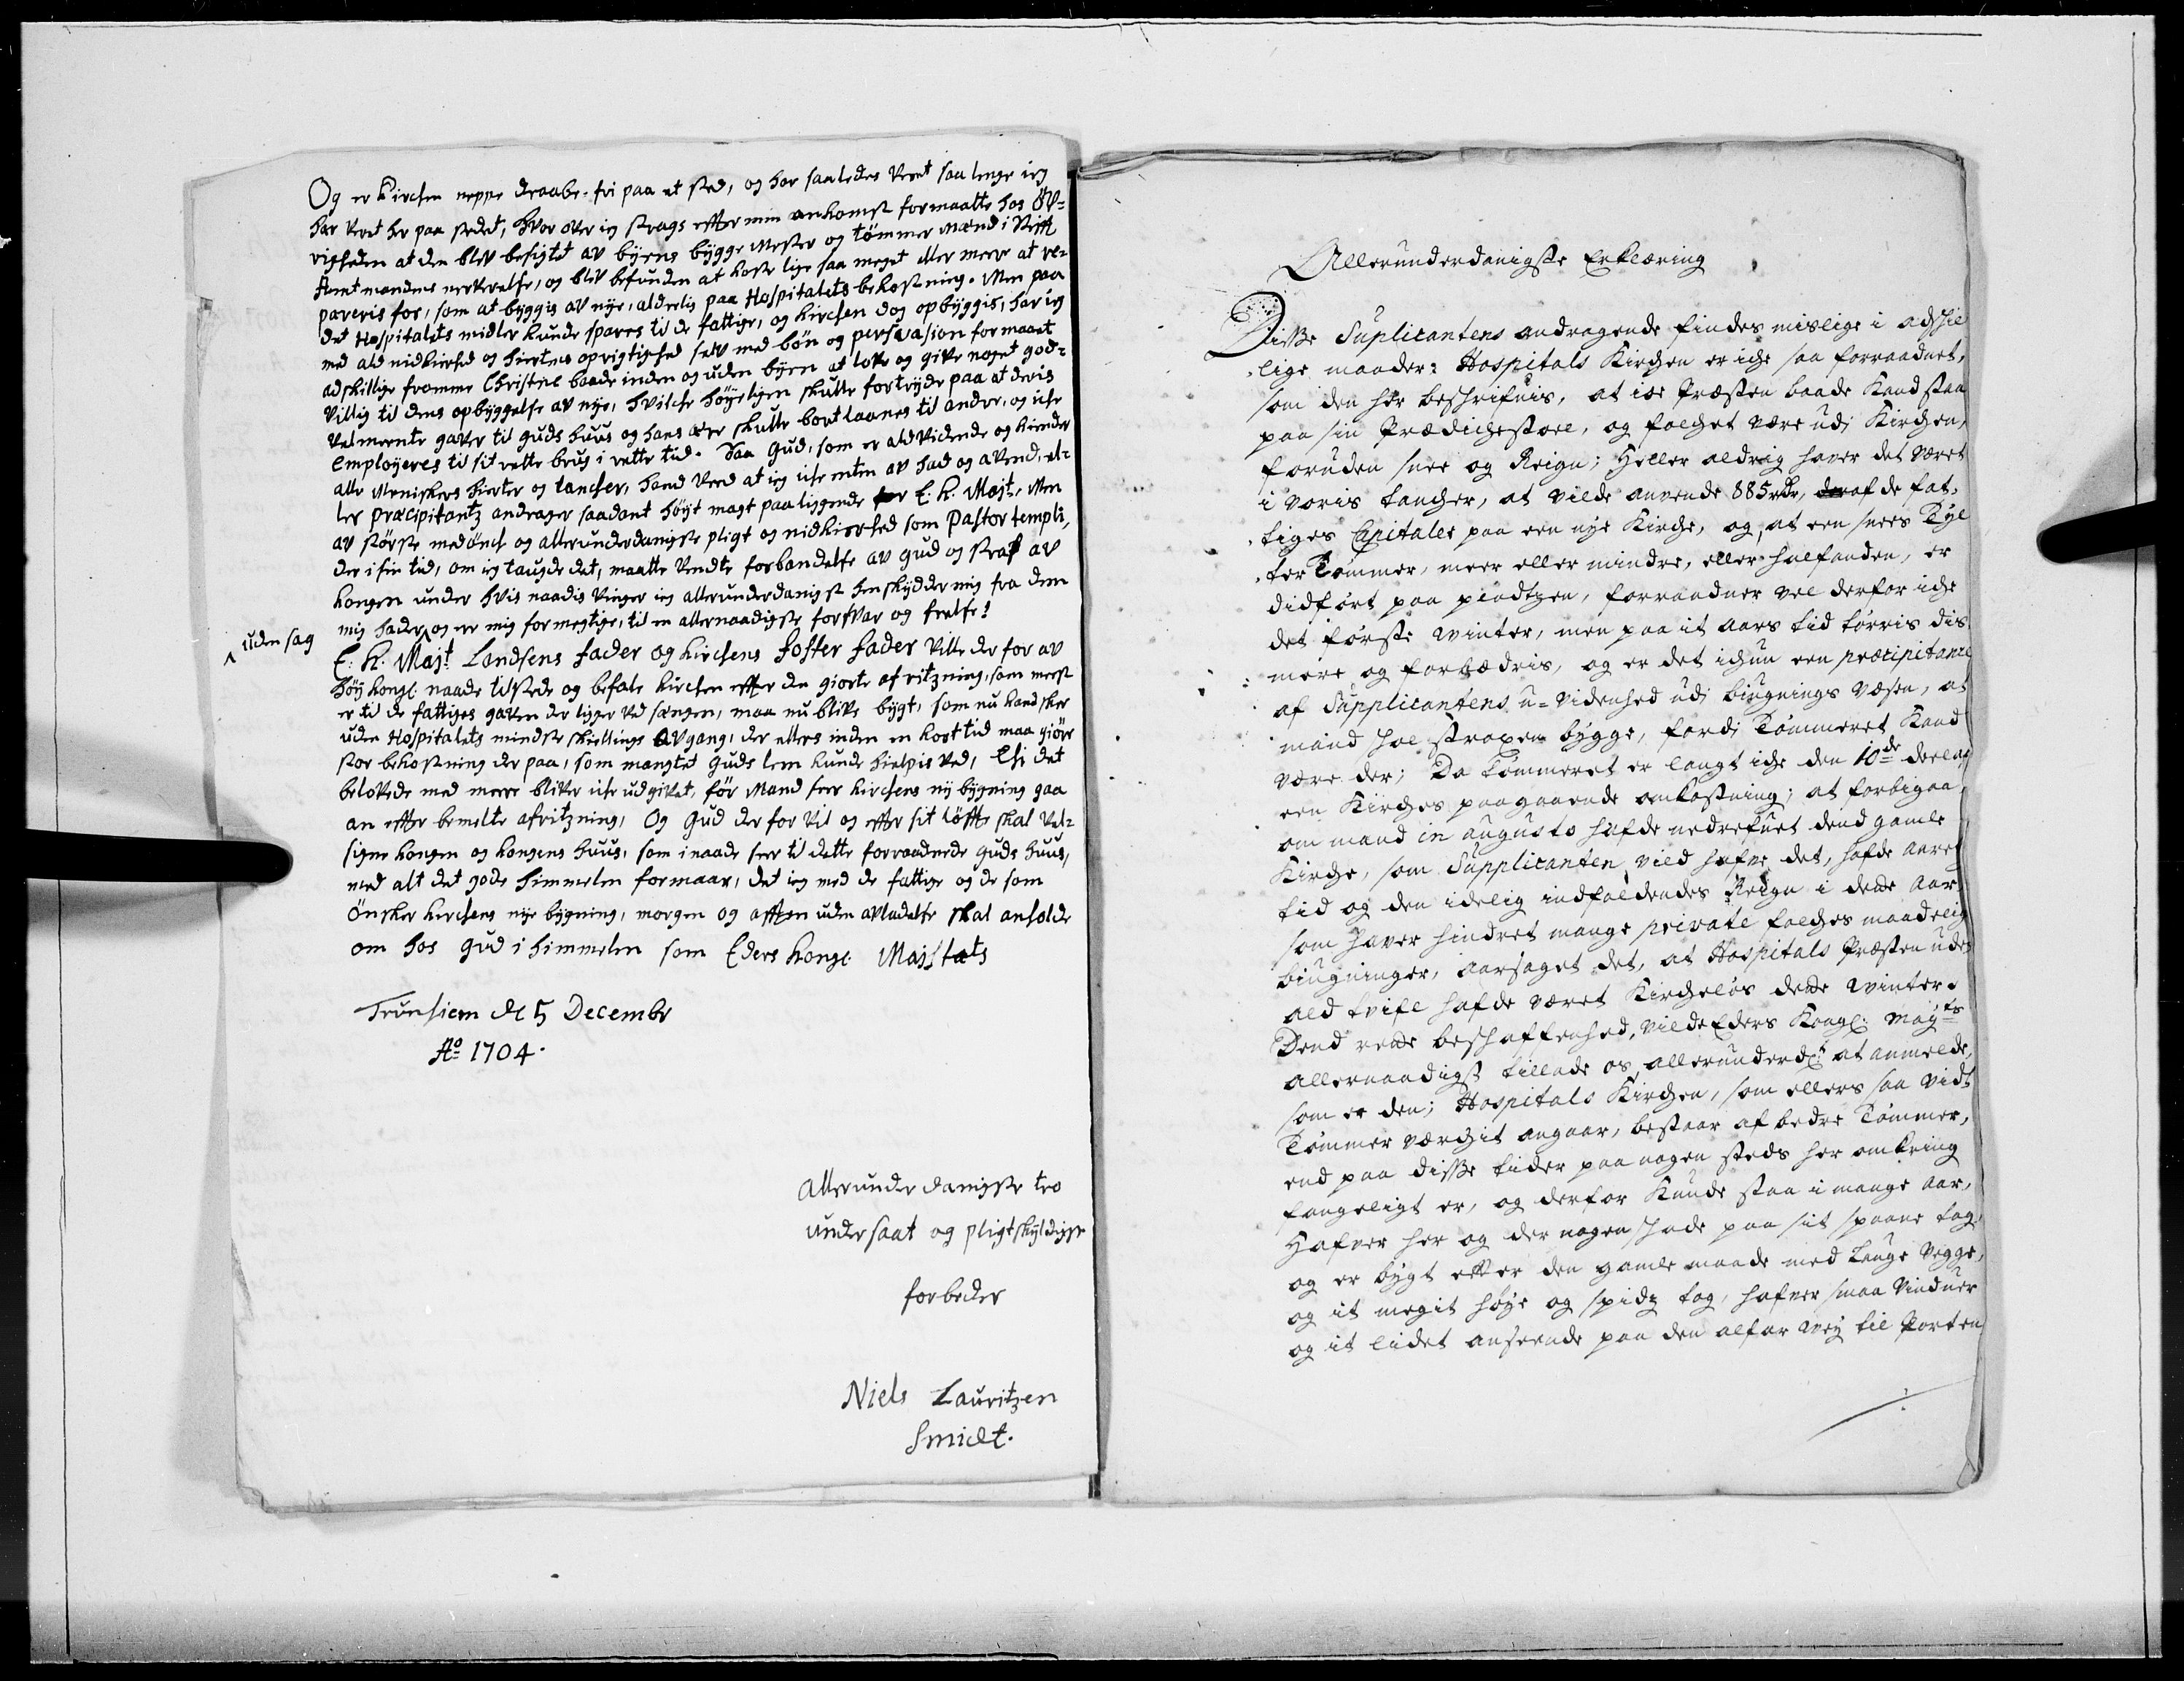 Og er Kirchen neppe draabe-fri paa et sted, og har saaledes veret saa lenge ieg
har veret her paa stedet, hvor over ieg strags effter min ankomst formaatte hos Øv-
righeden at den blev besigtet av byens bygge Mester og tömmer Mænd i Stifft
Amtmandens nerverelse, og blev befunden at koste lige saa meget eller meere at re-
pareris for, som at byggis av nye, alderlig paa Hospitalets bekostning. Men paa
det Hospitalets midler kunde spares til de fattige, og kirchen dog opbyggis, har ieg
med ald nidkierhed og hiertens oprigtighed selv med bön og persvasion formaaet
adskillige fromme Christne baade inden og uden byen at love og give noget god-
villig til dens opbyggelse av nye, hvilche höyeligen skulle fortryde paa at deris
velmeente gaver til guds huus og hans ære skulle bort laanes til andre, og iche
employeres til sit rette brug i rette tid. Saa Gud, som er aldvidende og kiender
alle Menniskers hierter og tancher, hand veed at ieg iche enten av had og avend, el-
ler præcipitantz andrager saadant höyt magt paaliggende for E. K. Majt., Men
av störste medönch og allerunderdanigste pligt og nidkierhed som Pastor templi,
der i sin tid, om ieg taugde det, maatte vendte forbandelse av Gud og straf av
kongen under hvis naadis vinger ieg allerunderdanigst henskydder mig fra dem
mig hader ^ og er mig formegtige, til en allernaadigste forsvar og frelse!
^ uden sag
E. K. Majt. Landsens fader og kirchens foster fader ville der for av
höy kongl. naade tilstede og befale kirchen effter den giorte afritzning, som meest
er til de fattiges gaven der ligger ved sængen, maa nu blive bygt, som nu kand skee
uden Hospitalets mindste skillings avgang, der ellers inden en kort tid maa giöre
stor bekostning der paa, som manget Guds lem kunde hielpis ved, Thi det
belovede med meere bliver iche udgivet, för Mand seer kirchens ny bygning gaa
an effter bemelte afritzning, Og Gud der for vil og effter sit löffte skal vel-
signe kongen og kongens huus, som i naade seer til dette forraadnede Guds huus,
med alt det gode himmelen formaar, det ieg med de fattige og de som
önsker kirchens nye bygning, morgen og afften uden avladelse skal anholde
om hos Gud i himmelen som Eders Kongl. Majstæts
Trunhiem de 5 Decembr
Ao 1704.
Allerunderdanigste tro
undersaat og pligtskyldigste
forbeder
Niels Lauritzen
Smidt.
Allerunderdanigste Erklæring
Disse Suplicantens andragende findes mislige i adschil
lige maader: Hospitals Kirchen er iche saa forraadnet,
som den her beschrifuis, at ioe Præsten baade Kand staa
paa sin Prædichestoel, og folchet være udi Kirchen,
foruden snee og Reign; Heller aldrig haver det været
i voris tancher, at vilde anvende 885 rdr, af de fat-
tiges Capitaler paa een nye Kirche, og, at een snees Tyl
ter Tømmer, meer eller mindre, eller halfanden, er
didført paa pladtzen, forraadner vel derfor iche
det første Winter, men paa it aars tid tørris dis
mere og forbædris, og er det ichun een præcipitance
af Supplicantens u-videnhed udi biugnings væsen, at
mand schal straxen bygge, fordi Tømmeret Kand
være der; Da Tømmeret er langt iche den 10de deel af
een Kirches paagaaende omkostning; at forbigaa,
om mand in augusto hafde nedrefuet dend gamle
Kirche, som Supplicanten vild hafve det, hafde aaret
tid og den idelig indfaldendes Reign i dette Aar,
som haver hindret mange private folches maadelig
biugninger, aarsaget det, at Hospitals Præsten uden
ald tvifl hafde været Kircheløs dette Winter.
Dend rette beschaffenhed, vilde Eders Kongl: Mayts
allernaadigst tillade os, allerunderd: at anmelde,
som er den; Hospitals Kirchen, som ellers saa vidt
Tømmer værchit angaar, bestaar af bedre Tømmer,
end paa disse tider paa nogen steds her omkring
fangeligt er, og derfor Kunde staa i mange Aar,
Hafver her og der nogen schade paa sit spaane tag,
og er bygt efter den gamle maade med lauge vegge,
og it megit høye og spidz tag, hafver smaa vinduer
og it lidet anseende paa den alfar vey til Porten